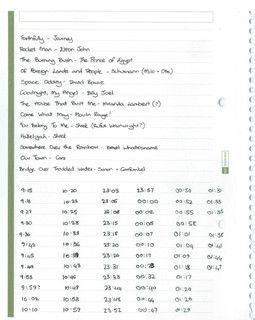 Faithfully - Journey
Rocket Man - Elton John
The Burning Bush - The Prince of Egypt
Of Foreign Lands and People - Schumann (Milo + Otis)
Space Oddity - David Bowie
Goodnight, My Angel - Billy Joel
The House That Built Me - Miranda Lambert (?)
Come What May - Moulin Rouge!
You Belong To Me - Shrek (Rufus Wainwright?)
Hallelujah - Shrek
Somewhere Over the Rainbow - Israel Whatshisname
Our Town - Cars
Bridge Over Troubled Water - Simon + Garfunkel
9:15 10:20 23:03 23:57 00:50 01:31
9:18 10:23 23:05 00:00 00:52 01:33
9:27 10:25 23:08 00:02 00:55 01:36
9:30 10:28 23:15 00:05 00:58
9:36 10:33 23:18 00:07 01:01
9:42 10:36 23:20 00:10 01:04
9:45 10:39 23:26 00:17 01:09
9:49 10:43 23:31 01:18 01:47
9:53 10:46 23:33 00:32 01:17
9:59? 10:49 23:48 00:40 01:20
10:08 10:53 23:48 00:44 01:26
10:10 10:59 23:52 00:47 01:29